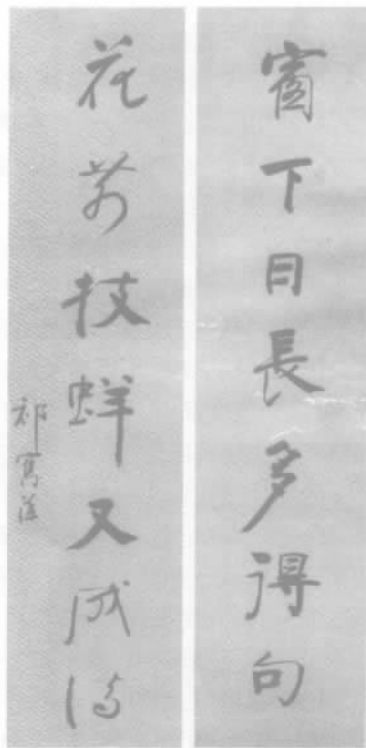 窗下日長多得句
花前技蛘又成詩
祁寯藻